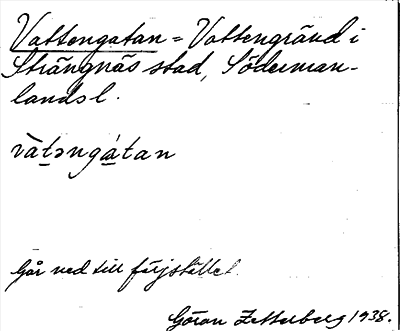 Vattengatan = Vattengränd i
Strängnäs stad, Söderman-
lands l.
và̱təngá̱tan
Går ned till färjstället.
Göran Zetterberg 1938.